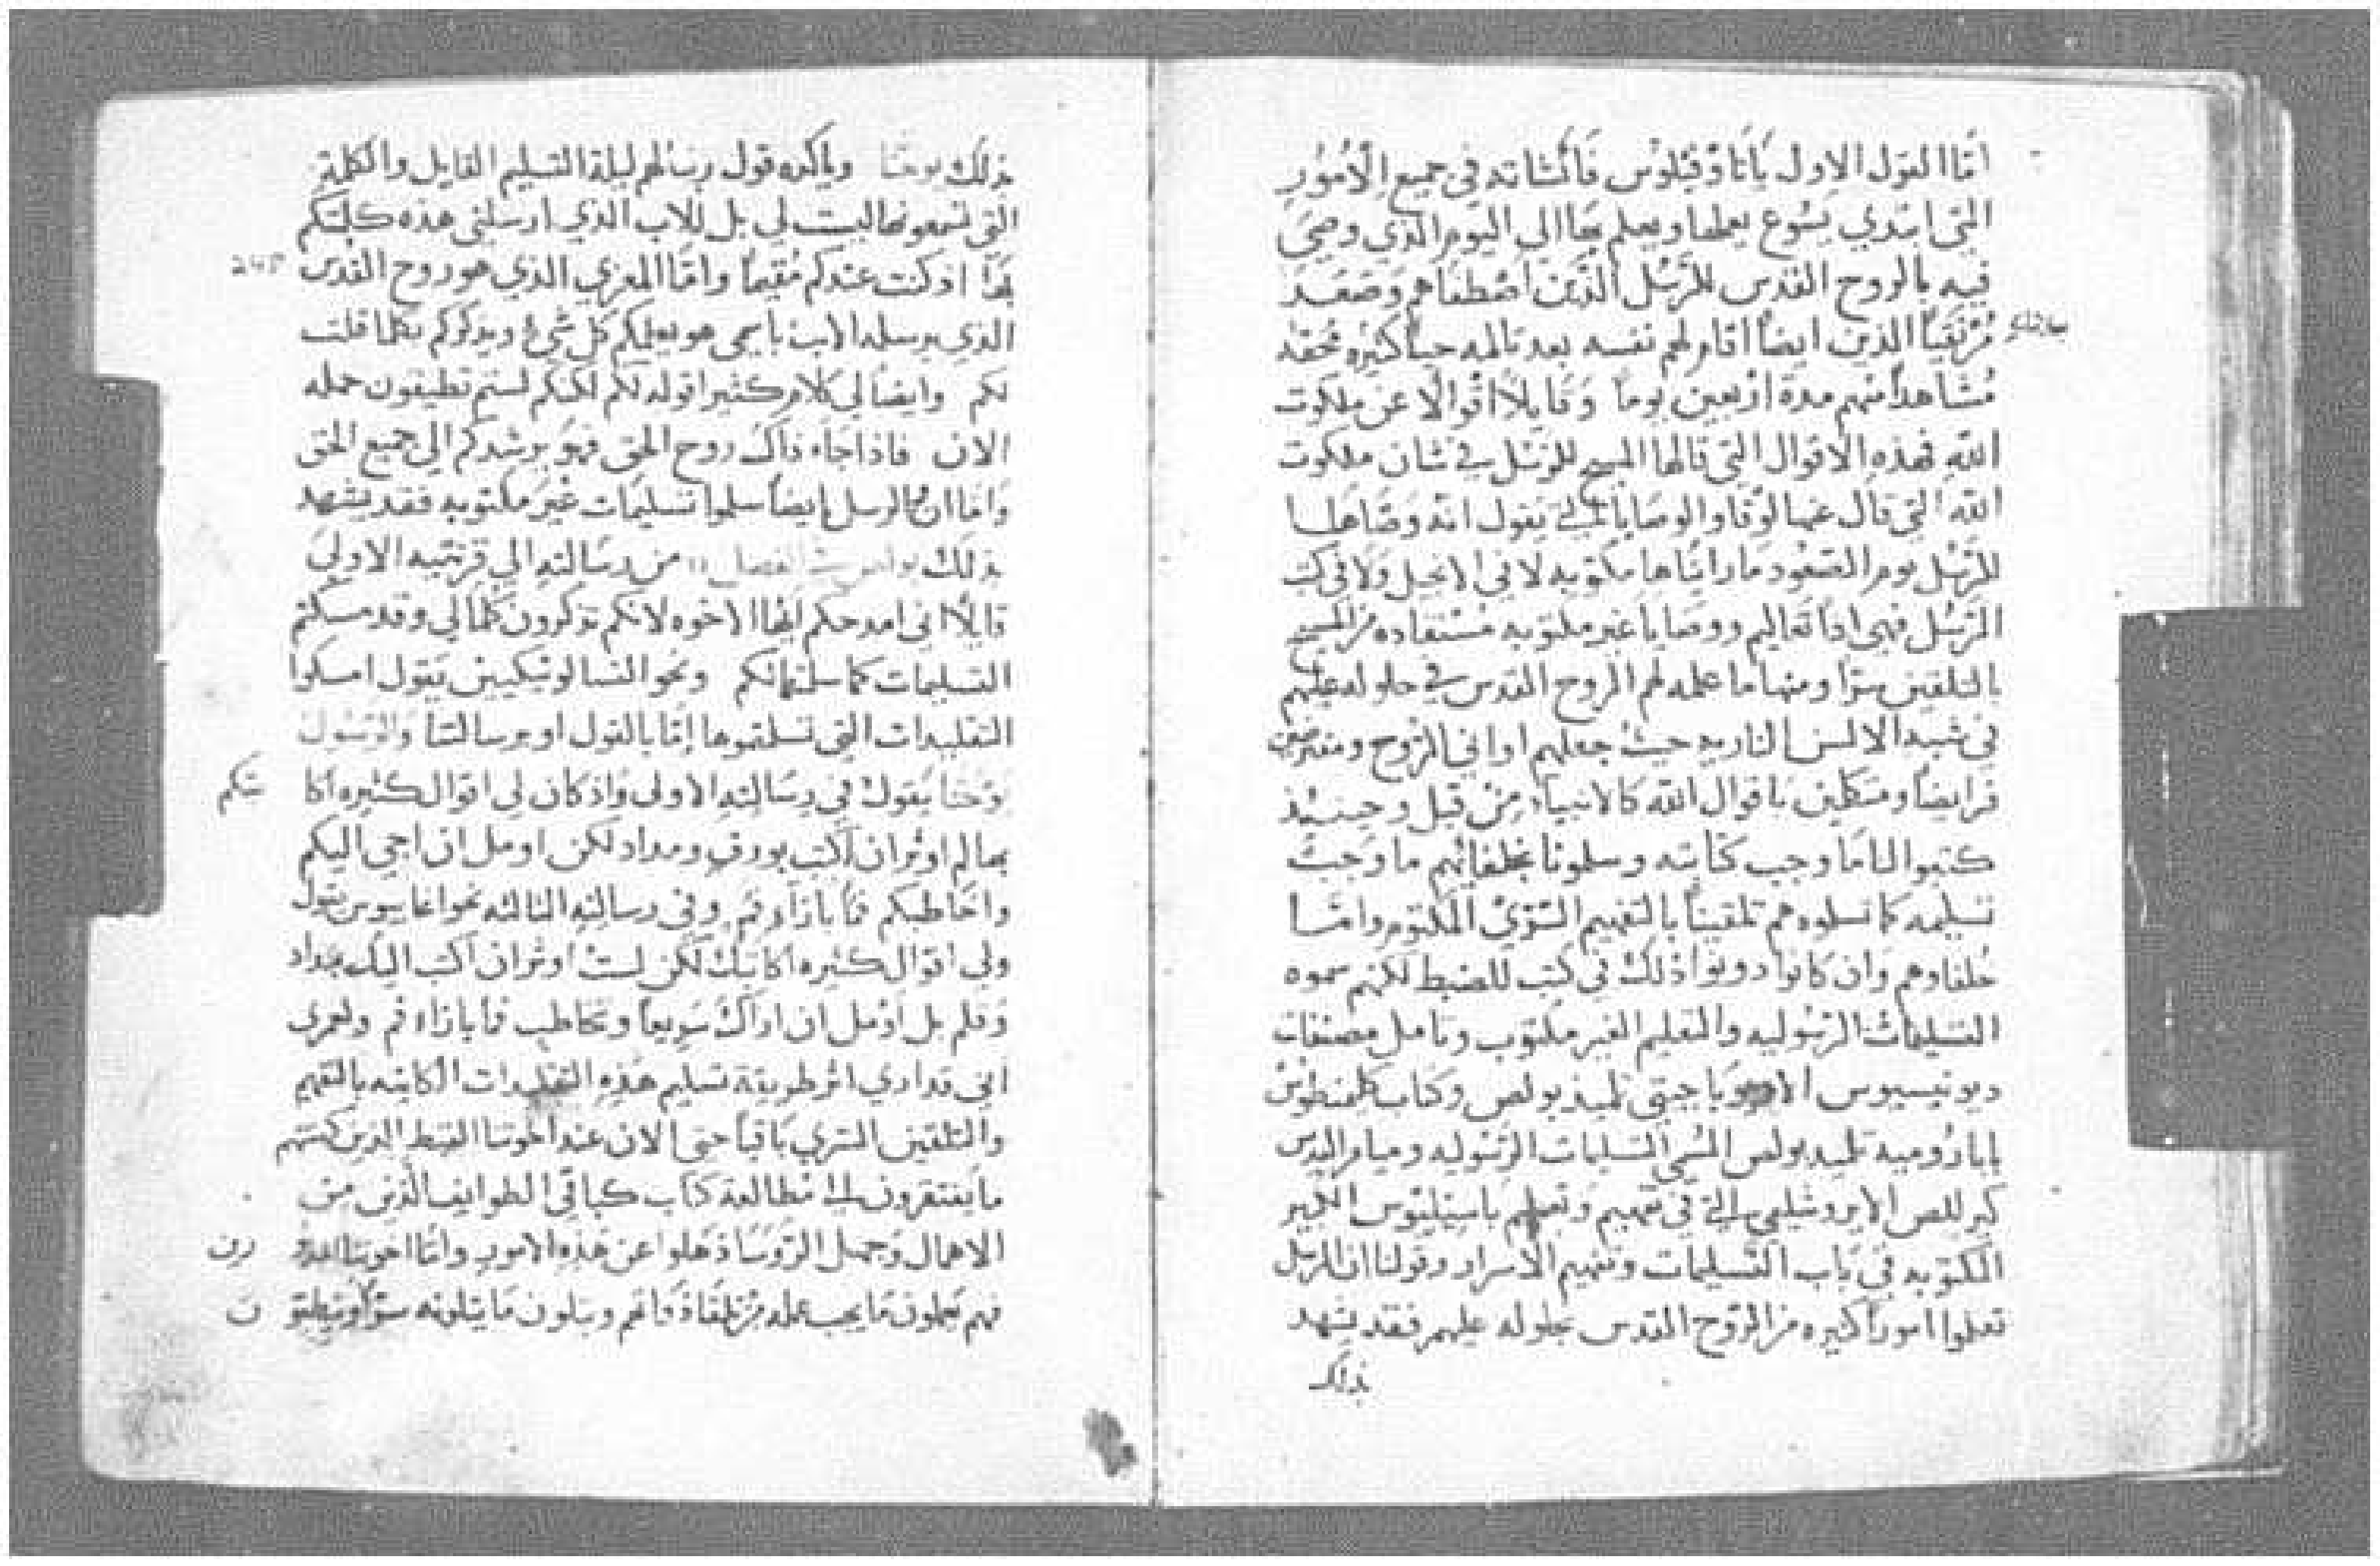 امّا القول الاول يَا ثاوُفيلوُس فانشاته في جميع الاُمُور
التي ابتدي يَسُوع يعملها ويعلم بها الي اليوم الذي وصيَ
فيه بالروح القدس للرُسُل الذين اصْطفاهم وَصَعَدَ
مُرْتقيًا الذين ايضًا اقام لهم نفسه بعد تالمه حيًا كثيره محققه
مُشاهدًا منهم مدة اربعين يومًا وَقايلاً اقوالاً عن ملكوت
الله فهذه الاقوال التي قالها المسيح للرسل في شان ملكوت
الله التي قال عنها لوقا والوصايا التي يقول انه وصّاها
للرُسُل يوم الصعُود ما رايناها مكتوبه لا في الانجيل ولا في كتب
الرسُل فهي اذًا تعاليم ووصايا غير مكتوبه مُسْتفاده من المسيح
بالتلقين سرًا ومنها ما علمه لهم الروح القدس في حلوله عليهم
في شبه الالسن الناريه حيث جعلهم اواني الروح ومفترضين
فرايضًا ومتكلمين باقوال الله كالانبياء من قبل وحينيذ
كتبوا لنا ما وجب كتابته وسلمونا بخلفائهم ما وجب
تسليمه كما تسلموه هم تلقينًا بالتفهيم السّرّيّ المكتوم وامّا
خُلفاوهم وان كانوا دونوا ذلك في كتب للضبط لكنهم سموه
التسليمات الرسُوليه والتعليم الغير مكتوب وتامل مصنفات
ديونيسيوس الاريوباجيتي تلميذ بولص وكتاب كليمنطوس
بابا رُوميه تلميذ بولص المُسَمي التسليمات الرسُوليه وميامر القديس
كيرللص الايروشليمي التي في تفهيم وتعليم باسيليوس الكبير
المكتوبه في باب التسليمات وتفهيم الاسرار وقولنا ان الرسل
تعلموا امورًا كثيره من الرّوح القدس بحلوله عليهم فقد يشهد
بذلك
بذلك يوحنا وياكده قول ربنا لهم ليلة التسليم القايل والكلمة
التي تسمعونها ليست لي بل للاب الذي ارسلني هذه كلمتكم
بها اذ كنت عندكم مُقيمًا وامّا المعزي الذي هو روح القدس
الذي يرسله الاب باسمي هو يعلمكم كل شيءٍ ويذكركم بكلما قلت
لكم وايضًا لي كلام كثير اقوله لكم لكنكم لستم تطيقون حمله
الان فاذا جاء ذاك روح الحق فهو يرشدكم الي جميع الحق
وامّا ان الرسل ايضًا سلموا تسليمات غير مكتوبه فقد يشهد
بذلك بولص من رسالته الي قرنتيه الاولي
قايلاً اني امدحكم ايّها الاخوه لانكم تذكرون كلما لي وقد مسكتم
التسليمات كما سلمتها لكم ونحو التسالونيكيين يَقول امسكوا
التقليدات التي تسلمتموها إمّا بالقول او برسالتنا والرسول
يوحنا يقول في رسالته الاولي وَاذ كان لي اقوال كثيره اكا
تبكم
بها لم اوثر ان اكتب بورقٍ ومداد لكن اومل ان اجي اليكم
واخاطبكم فمًا بازآء فم وفي رسالته الثالثه نحو اغاييوس يقول
ولي اقوال كثيره اكاتبك لكن لست اوثر ان اكتب اليك بمداد
وَقلم بل اومل ان اراك سَريعًا ونخاطب فمًا بازاء فم ولعمري
انني قد اري اثر طريقة تسليم هَذِهِ التقليدات الكاينه بالتفهيم
والتلقين السّري باقيًا حتي الان عند اخوتنا القبط الذين كنهم
ما يفتقرون الي مطالعة كتاب كباقي الطوايف الذين من
الاهمال وَجهل الرّوسَا ذهلوا عن هَذهِ الامور وامّا اخوتنا المذكو
رون
فهم يَعملون مَا يجب عمله من تلقاء ذَواتهم ويتلون مَا يتلونه سرًا وينطبقو
ن